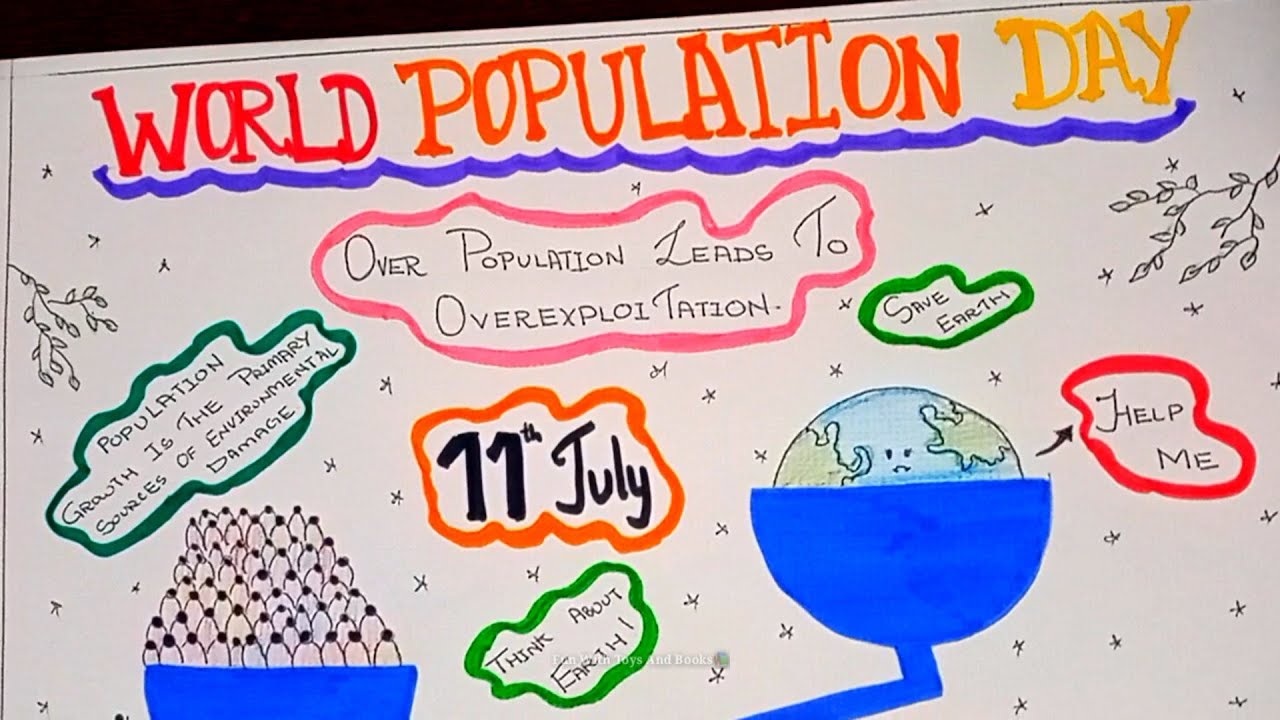 WORLD POPULATION DAY
OVER POPULATION LEADS TO
OVEREXPLOITATION.
SAVE
EARTH
POPULATION
GROWTH IS THE PRIMARY
SOURCES OF ENVIRONMENTAL
DAMAGE
11th July
HELP
ME
THINK ABOUT
EARTH!
Fun With Toys And Books